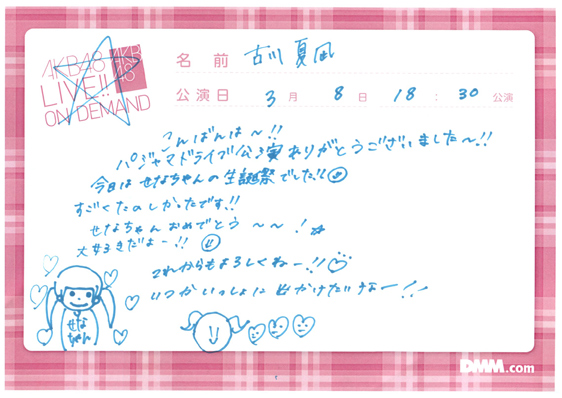 AKB48
LIVE!!
ON DEMAND
AKB
48
名前 古川夏凪
公演日 3月8日18:30公演
こんばんは〜!!
パジャマドライブ公演ありがとうございました〜!!
今日はせなちゃんの生誕祭でした!!
すごくたのしかったです!!
せなちゃんおめでとう〜〜!
大好きだよー!!
これからもよろしくねー!!
いつかいっしょに出かけたいなー!!
せな
ちゃん
DMM.com